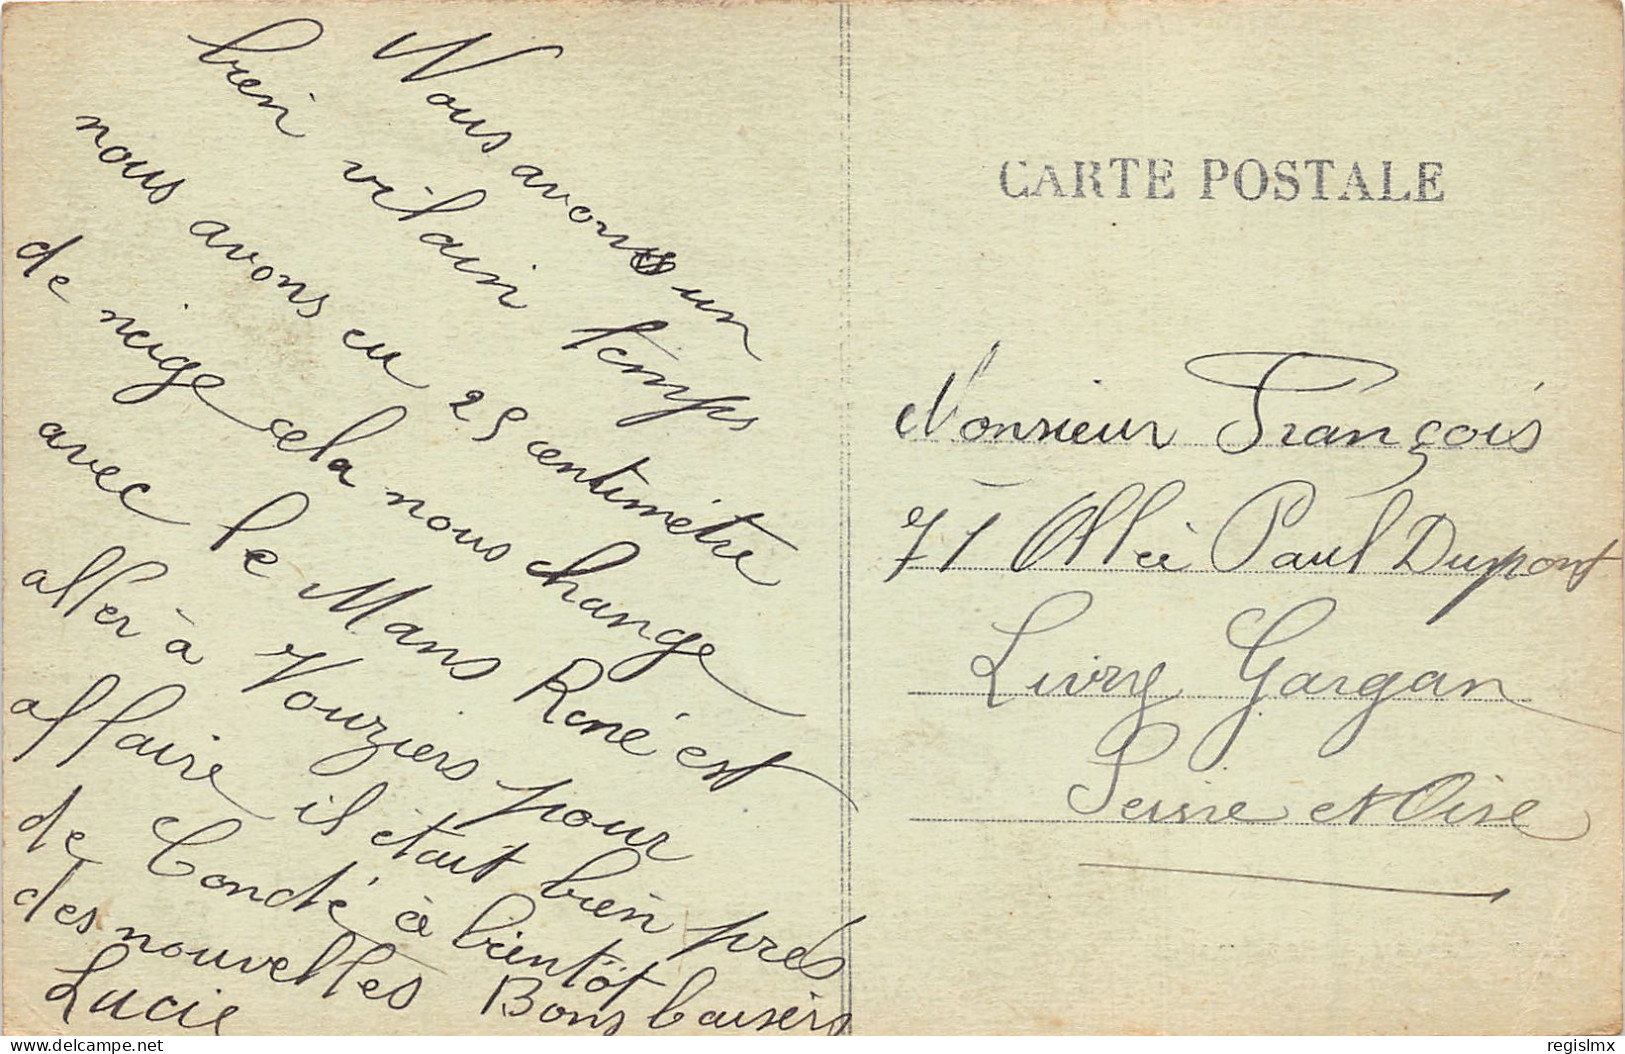 Nous avons un
bien vilain temps
nous avons eu 25 centimètre
de neige cela nous change
avec le Mans René est
aller à Vouziers pour
affaire il était bien près
de Condé à bientôt
des nouvelles Bons baisers
Lucie
CARTE POSTALE
Monsieur François
71 Allée Paul Dupont
Livry Gargan
Seine et Oise
delcampe.net
regislmx